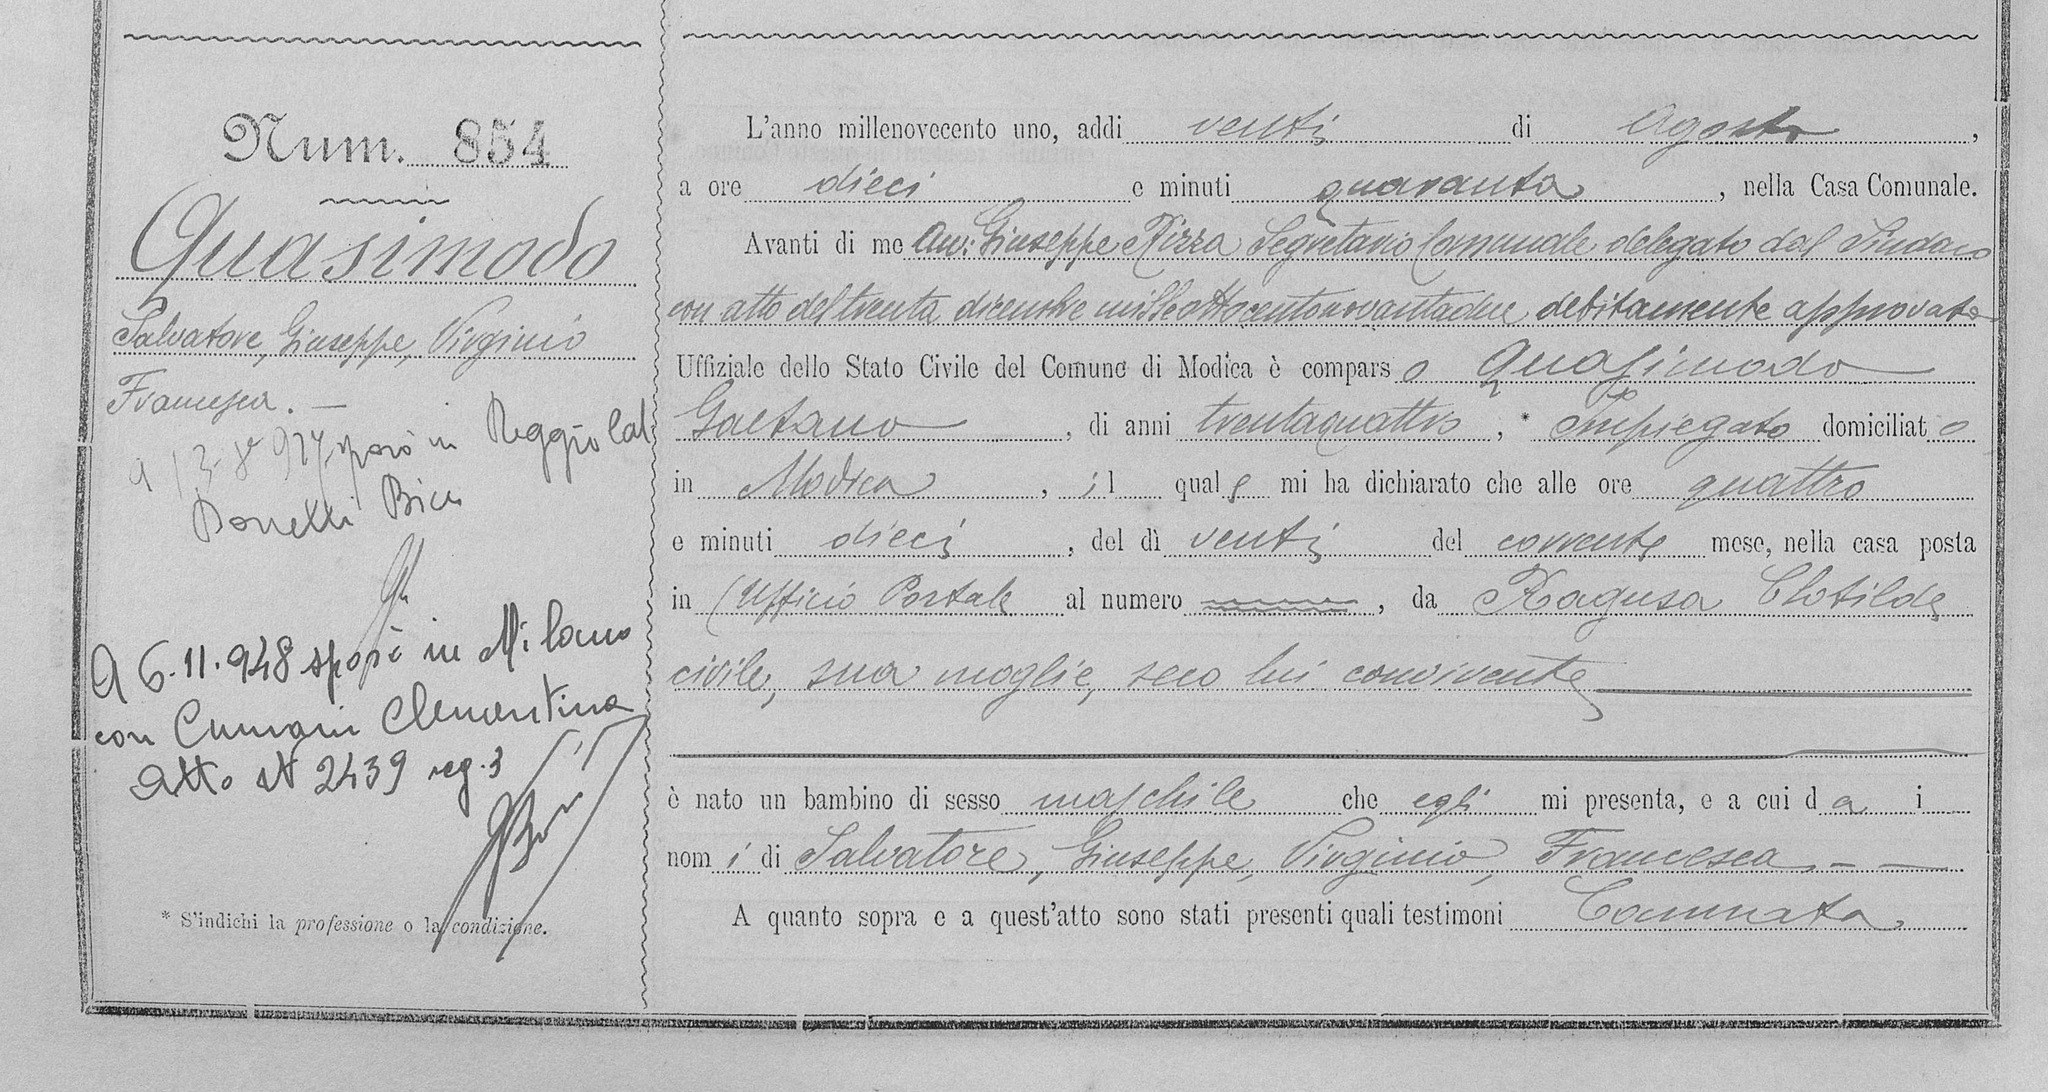 Num. 854
Quasimodo
Salvatore, Giuseppe, Virginio
Francesca. —
A 13-8-927 sposò in Reggio Cal
Donelli Bice
A 6.11.948 sposò in Milano
con Cumani Clementina
Atto N 2439 reg. 3
* S'indichi la professione o la condizione.
L'anno millenovecento uno, addì venti di Agosto,
a ore dieci e minuti quaranta, nella Casa Comunale.
Avanti di me Avv: Giuseppe Rizza Segretario Comunale delegato dal Sindaco
con atto del trenta dicembre milleottocentonovantadue debitamente approvato
Uffiziale dello Stato Civile del Comune di Modica è comparso Quasimodo
Gaetano, di anni trentaquattro, * Impiegato domiciliato
in Modica, il quale mi ha dichiarato che alle ore quattro
e minuti dieci, del dì venti del corrente mese, nella casa posta
in Ufficio Postale al numero, da Ragusa Clotilde
civile, sua moglie, seco lui convivente
è nato un bambino di sesso maschile che egli mi presenta, e a cui da i
nomi di Salvatore, Giuseppe, Virginio, Francesca — —
A quanto sopra e a quest'atto sono stati presenti quali testimoni